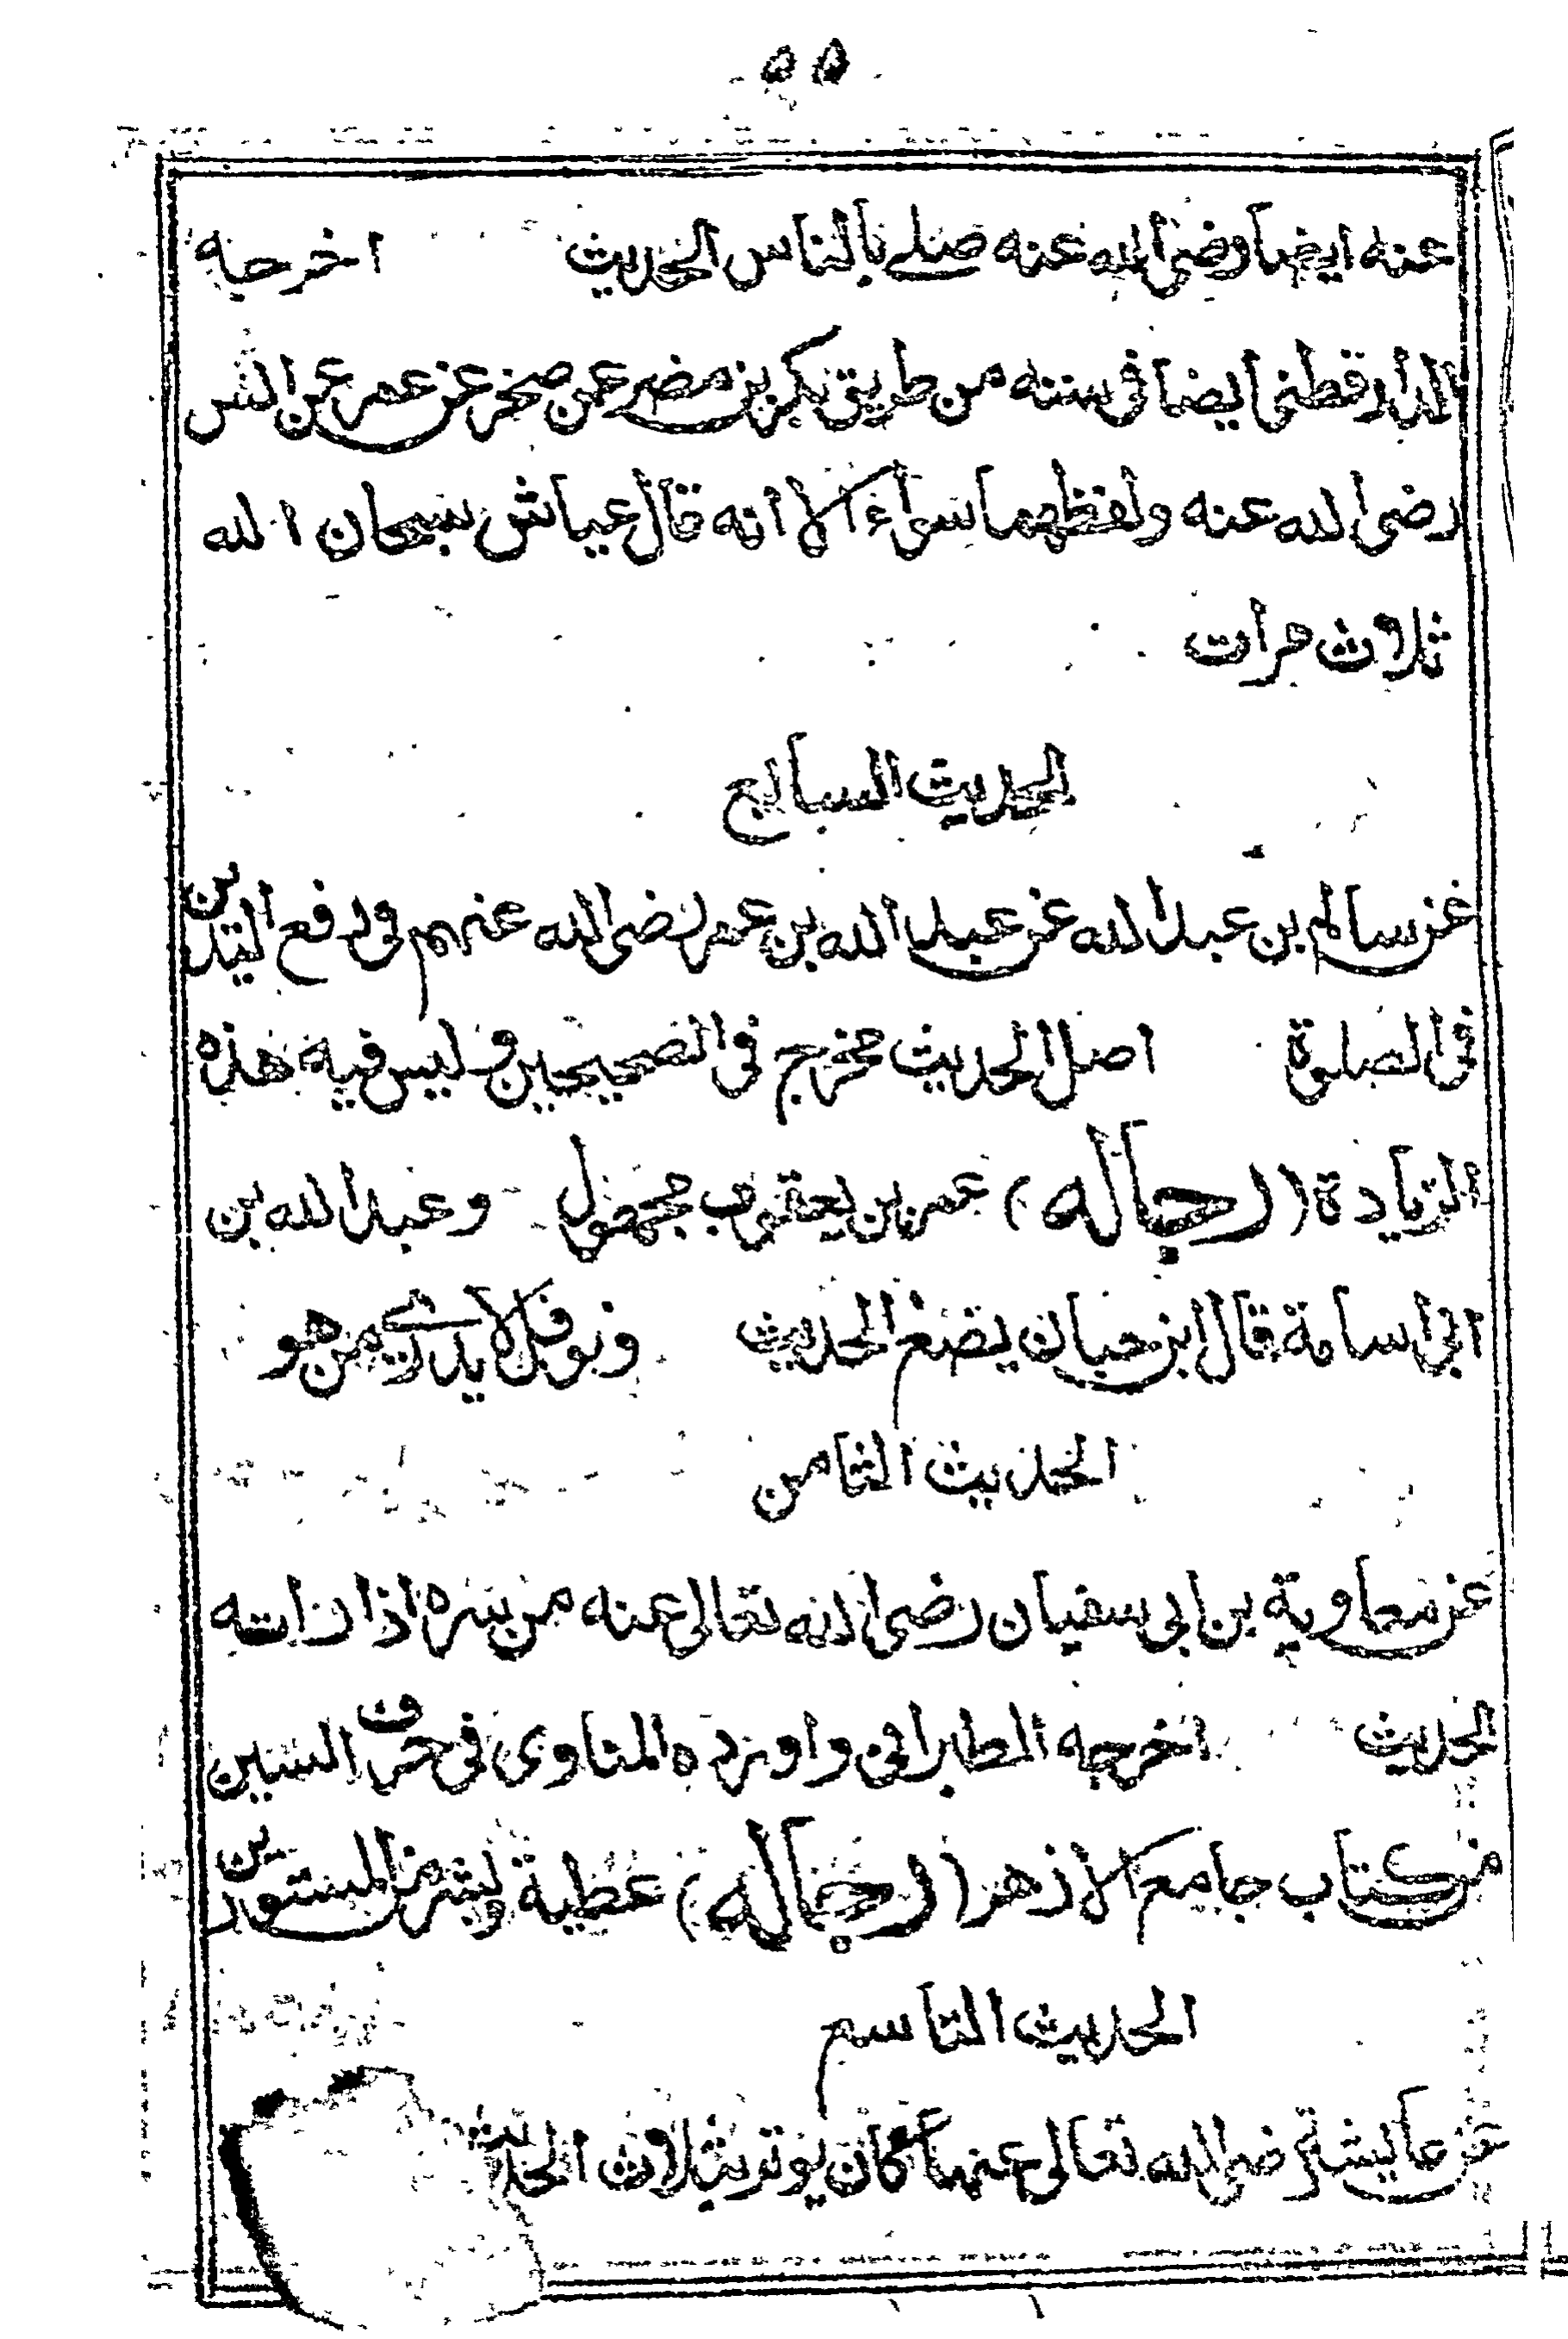 ٥٥
عنه ايضا رضى الله عنه صلى بالناس الحديث اخرجه
الدارقطنى ايضا فى سننه من طريق بكر بن مضر عن صخر عن عمر عن انس
رضى الله عنه ولفظهما سواء الا انه قال عياش سبحان الله
ثلاث مرات
الحديث السابع
عن سالم بن عبد الله عن عبد الله بن عمر رضى الله عنهم فى رفع اليدين
فى الصلوة اصل الحديث مخرج فى الصحيحين وليس فيه هذه
الزيادة (رجاله) عمر بن يعقوب مجهول وعبد الله بن
ابى اسامة قال ابن حبان يضع الحديث ونوفل لا يدرى من هو
الحديث الثامن
عن معاوية بن ابى سفيان رضى الله تعالى عنه من سره اذا راته
الحديث اخرجه الطبرانى واورده المناوى فى حرف السين
من كتاب جامع الازهر (رجاله) عطية وبشر من المستورين
الحديث التاسع
عن عايشة رضى الله تعالى عنها كان يوتر بثلاث الحديث